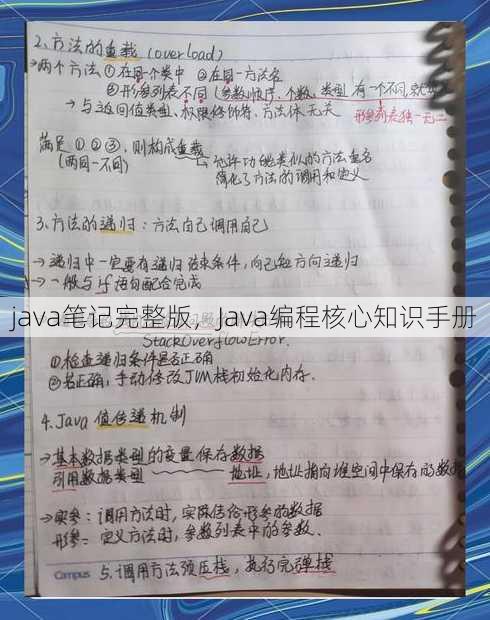 2.方法的重载(overload)
→两个方法①在同一个类中 ②在同一方法名
③形参列表不同(参数顺序、个数、类型 有一个不同就
→与返回值类型、权限修饰符、方法体无关
形参列表独一无二
满足①②③,则构成重载
(两同一不同)
↳允许功能类似的方法重名
简化了方法的调用和定义
3.方法的递归:方法自己调用自己
→递归中一定要有递归结束条件,向已知方向递归
→一般与if语句配合完成
java笔记完整版,Java编程核心知识手册
StackOverflowError.
①检查递归条件是否正确
②若正确,手动修改JVM栈初始化内存.
4.Java 值传递机制
→基本数据类型的变量保存数据
引用数据类型 地址,地址指向堆空间中保存的数据
→实参:调用方法时,实际传给形参的数据
形参:定义方法时,参数列表中的参数.
Campus 5.调用方法预压栈,执行完弹栈